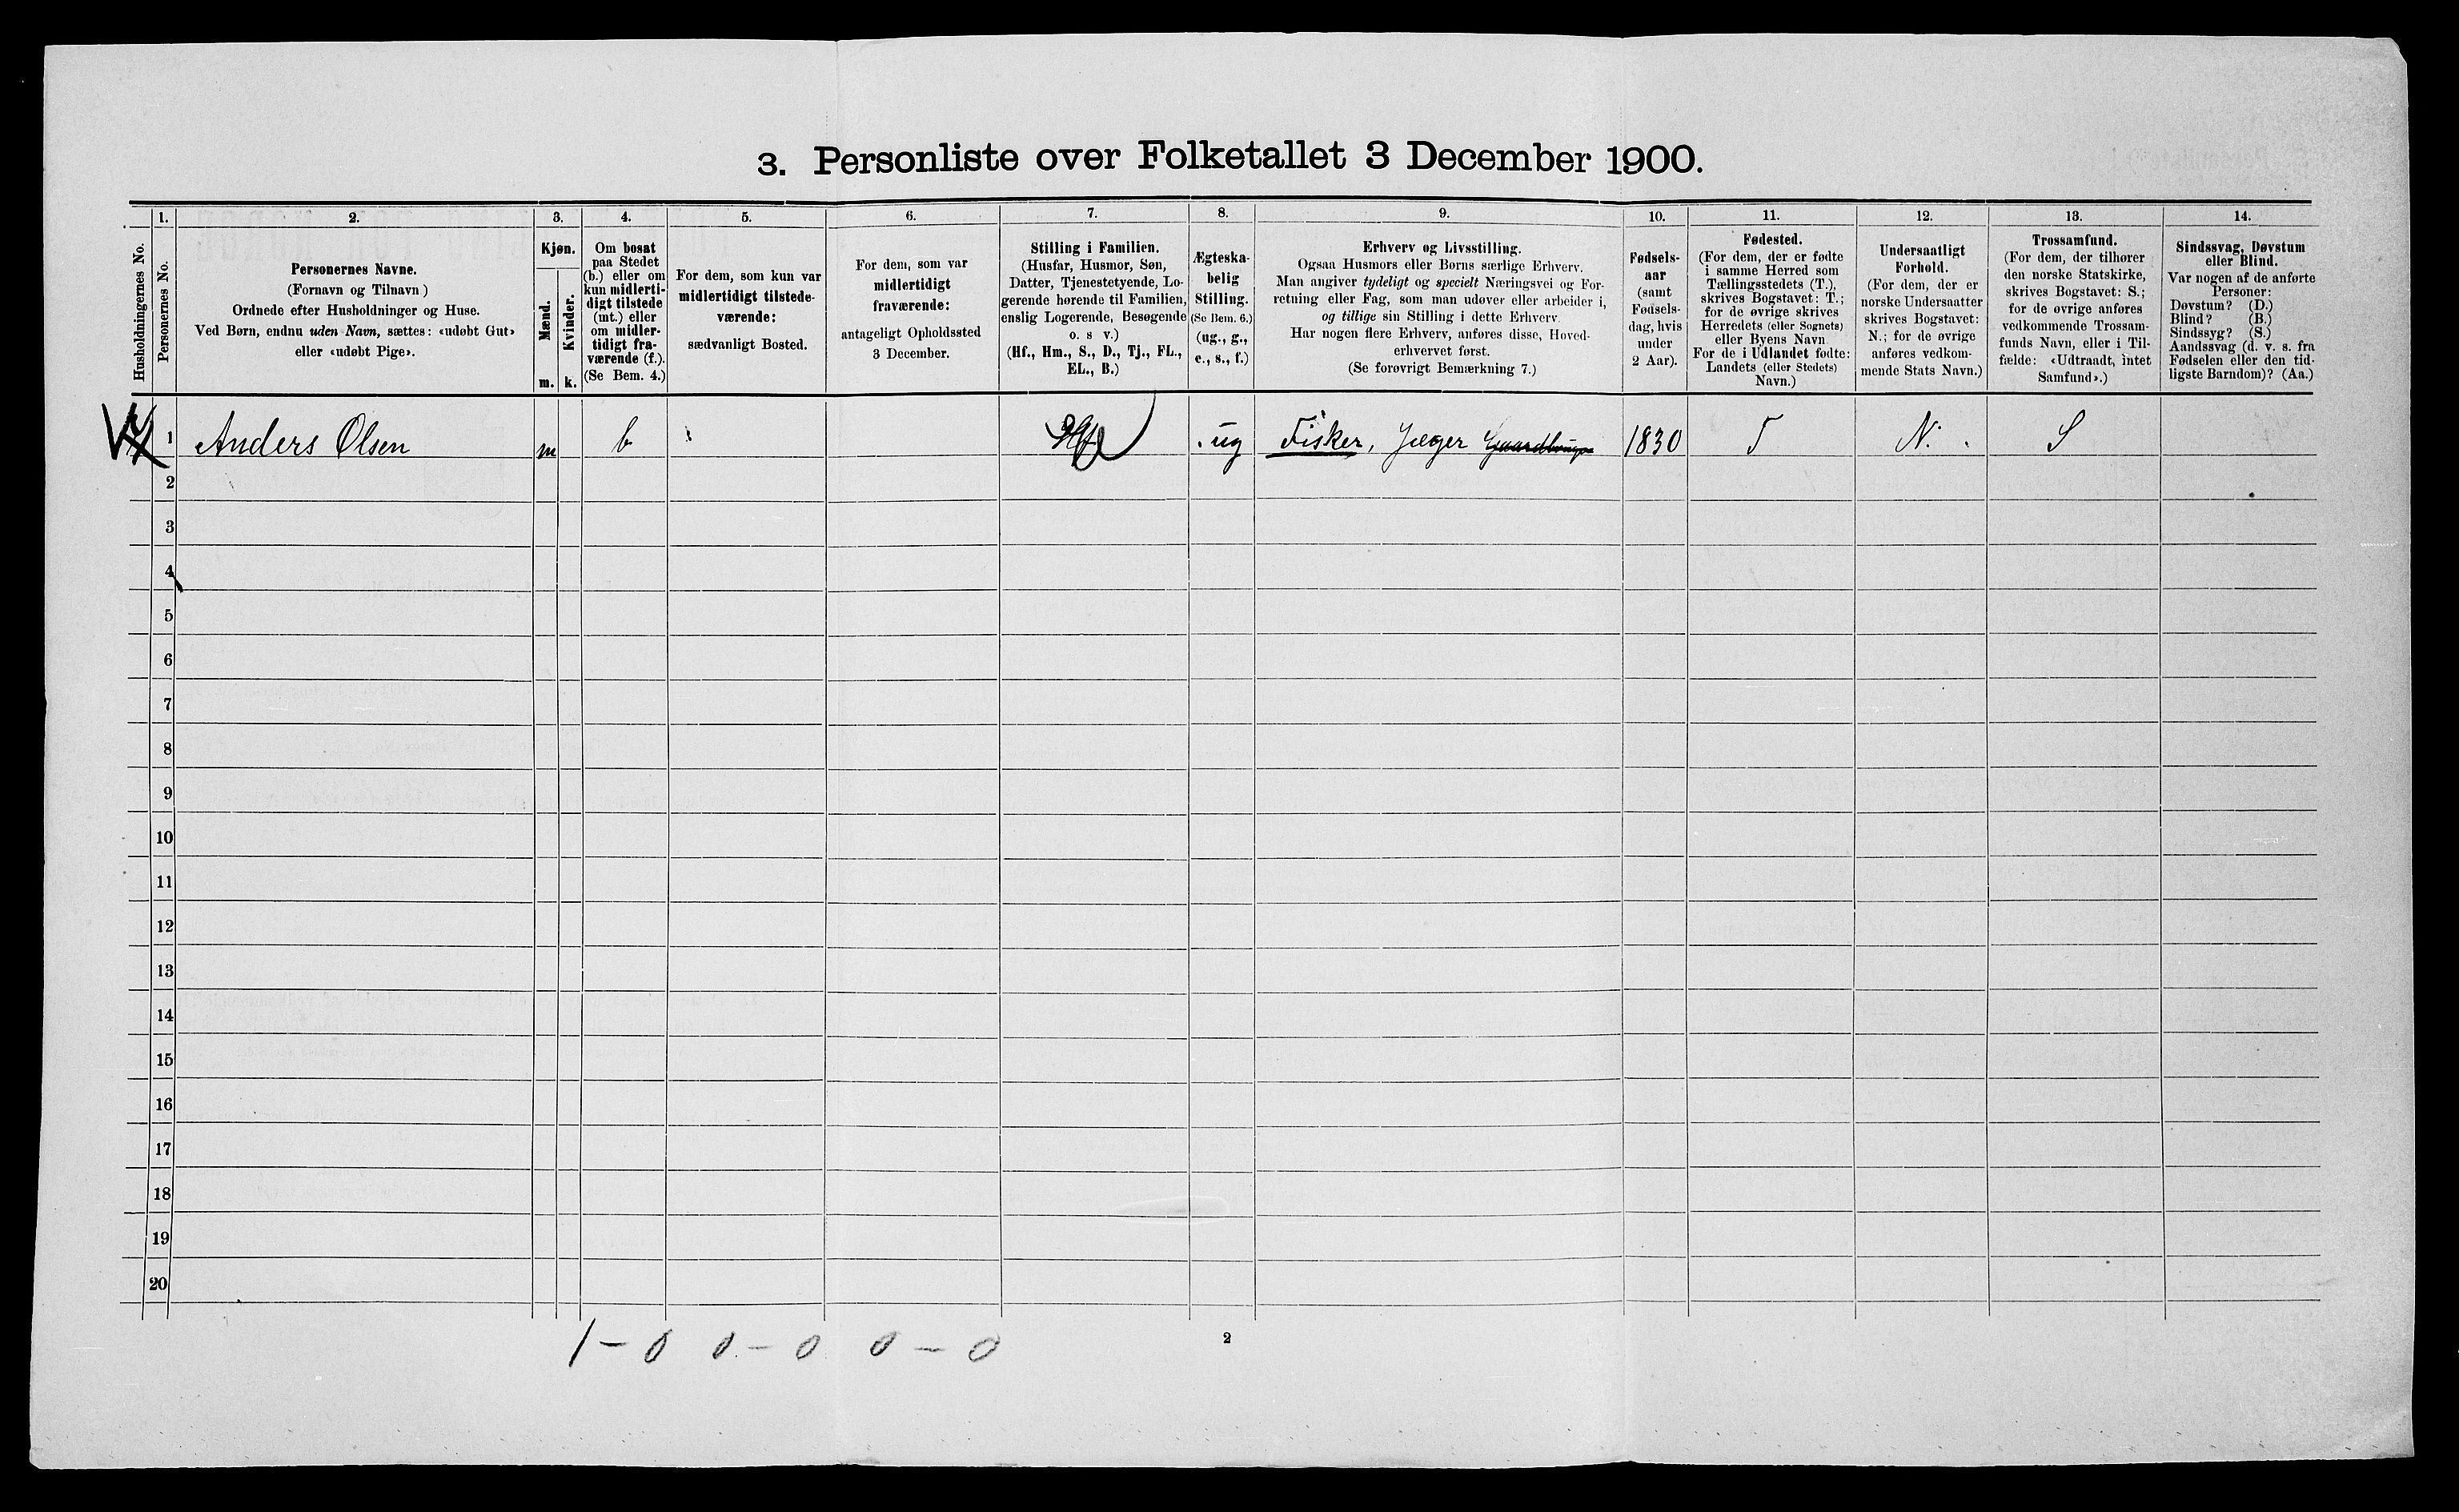 3. Personliste over Folketallet 3 December 1900.
1. 2. 3. 4. 5. 6. 7. 8. 9. 10. 11. 12. 13. 14.
Husholdningernes No.
Personernes No.
Personernes Navne.
(Fornavn og Tilnavn)
Ordnede efter Husholdninger og Huse.
Ved Børn, endnu uden Navn, sættes: «udøbt Gut»
eller «udøbt Pige».
Kjøn.
Mænd.
Kvinder.
m. k.
Om bosat
paa Stedet
(b.) eller om
kun midlerti-
digt tilstede
(mt.) eller
om midler-
tidigt fra-
værende (f.).
(Se Bem. 4.)
For dem, som kun var
midlertidigt tilstede-
værende:
sædvanligt Bosted.
For dem, som var
midlertidigt
fraværende:
antageligt Opholdssted
3 December.
Stilling i Familien.
(Husfar, Husmor, Søn,
Datter, Tjenestetyende, Lo-
gerende hørende til Familien,
enslig Logerende, Besøgende
o. s v.)
(Hf., Hm., S., D., Tj., FL.,
EL., B.)
Ægteska-
belig
Stilling.
(Se Bem. 6.)
(ug., g.,
e., s., f.)
Erhverv og Livsstilling.
Ogsaa Husmors eller Børns særlige Erhverv.
Man angiver tydeligt og specielt Næringsvei og For-
retning eller Fag, som man udøver eller arbeider i,
og tillige sin Stilling i dette Erhverv.
Har nogen flere Erhverv, anføres disse, Hoved-
erhvervet først.
(Se forøvrigt Bemærkning 7.)
Fødsels-
aar
(samt
Fødsels-
dag, hvis
under
2 Aar).
Fødested.
(For dem, der er fødte
i samme Herred som
Tællingsstedets (T.),
skrives Bogstavet: T.;
for de øvrige skrives
Herredets (eller Sognets)
eller Byens Navn
For de i Udlandet fødte:
Landets (eller Stedets)
Navn.)
Undersaatligt
Forhold.
(For dem, der er
norske Undersaatter
skrives Bogstavet:
N.; for de øvrige
anføres vedkom-
mende Stats Navn.)
Trossamfund.
(For dem, der tilhører
den norske Statskirke,
skrives Bogstavet: S.;
for de øvrige anføres
vedkommende Trossam-
funds Navn, eller i Til-
fælde: «Udtraadt, intet
Samfund».)
Sindssvag, Døvstum
eller Blind.
Var nogen af de anførte
Personer:
Døvstum? (D.)
Blind? (B.)
Sindssyg? (S.)
Aandssvag (d. v. s. fra
Fødselen eller den tid-
ligste Barndom)? (Aa.)
1 Anders Olsen m b ug Fisker, Jæger 1830 T N. S
2
3
4
5
6
7
8
9
10
11
12
13
14
15
16
17
18
19
20
1 – 0 0 – 0 0 – 0
2